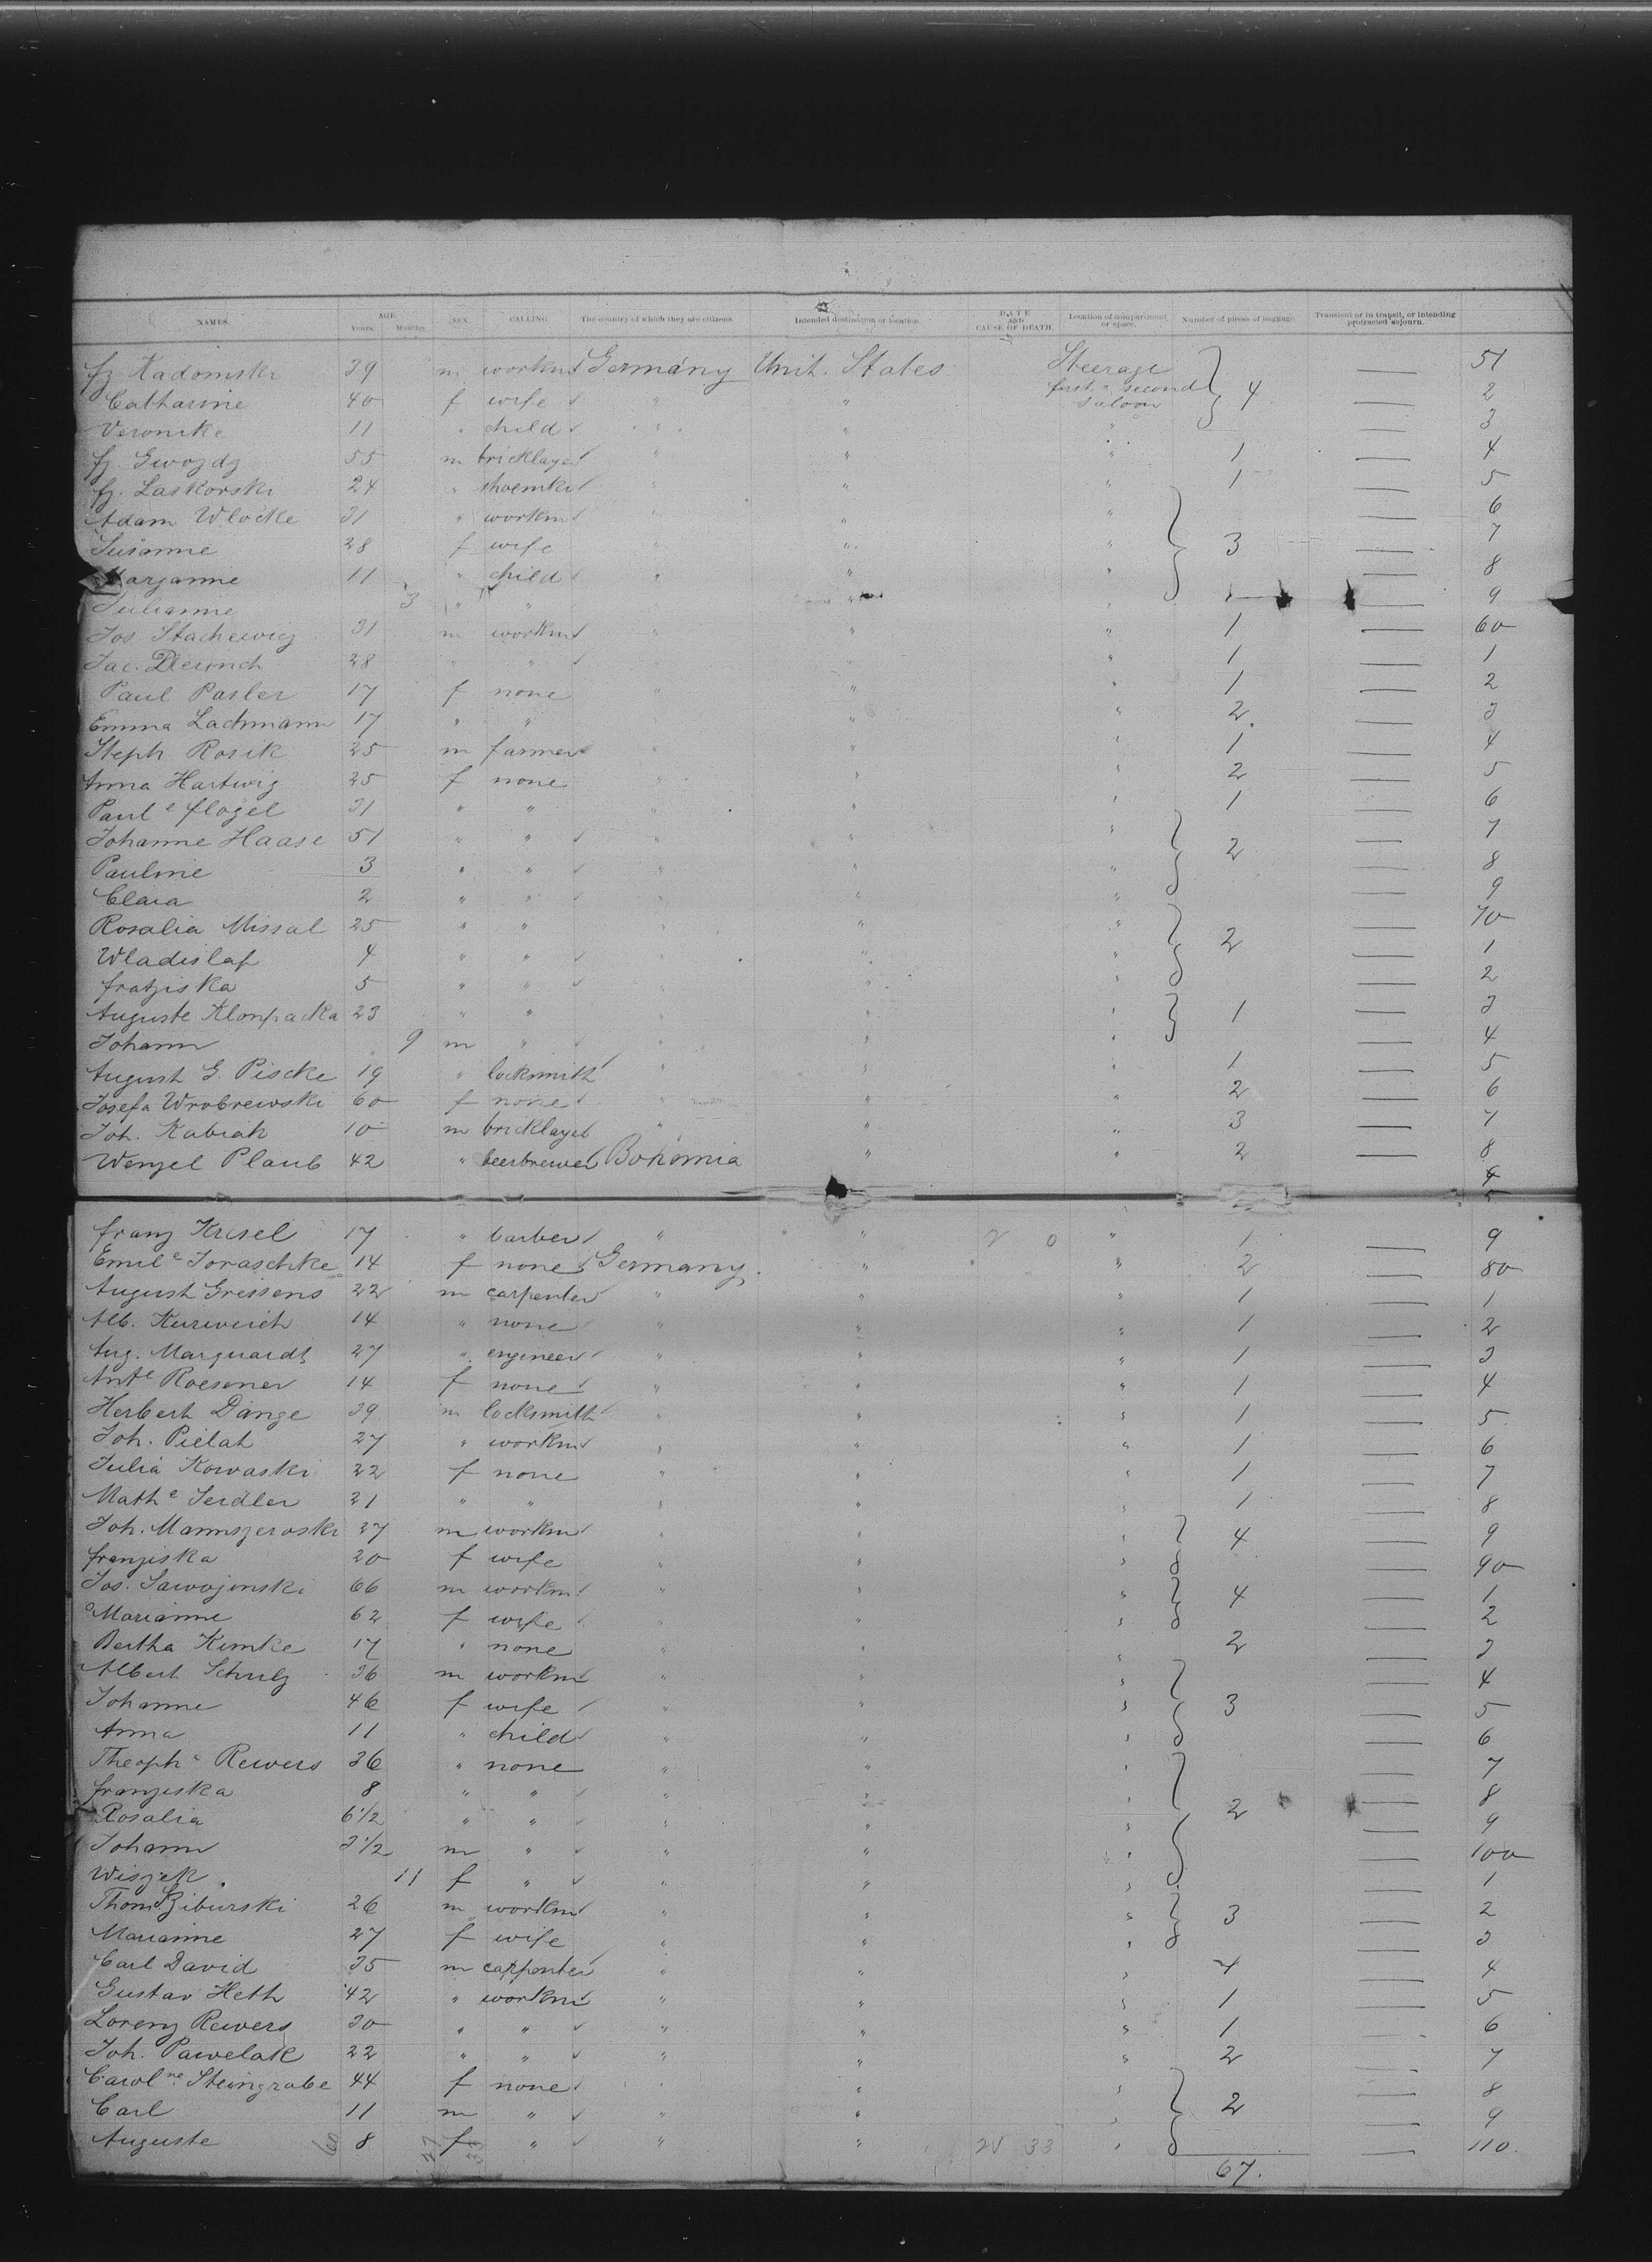 NAMES. AGE. Years. Months. SEX. CALLING. The country of which they are citizens. Intended destination or location. DATE AND CAUSE OF DEATH. Location of compartment or space. Number of pieces of baggage. Transient or in transit, or intending protracted sojourn.
fz Kadomski 39 m workm Germany Unit. States Steerage — 51
Catharine 40 f wife " " first & second saloon 4 — 2
Veronika 11 " child " " " — 3
fz. Gwozdz 55 m bricklayer " " " 1 — 4
fz. Laskorski 24 " shoemkr " " " 1 — 5
Adam Wlocke 31 " workm " " " — 6
Susanne 28 f wife " " " 3 — 7
Marjanne 11 " child " " " — 8
Julianne 3 " " " " — 9
Jos Stachewicz 31 m workm " " " 1 — 60
Jac. 28 " " " " " 1 — 1
Paul Pasler 17 f none " " " 1 — 2
Emma Lachmann 17 " " " " " 2 — 3
Steph. Rosik 25 m farmer " " " 1 — 4
Anna Hartwig 25 f none " " " 2 — 5
Paule flögel 31 " " " " " 1 — 6
Johanne Haase 51 " " " " " — 7
Pauline 3 " " " " " 2 — 8
Clara 2 " " " " " — 9
Rosalia Missal 25 " " " " " — 70
Wladislaf 4 " " " " " 2 — 1
fratziska 5 " " " " " — 2
Auguste Klonpacka 23 " " " " " 1 — 3
Johann 9 m " " " " — 4
August G. Piscke 19 " locksmith " " " 1 — 5
Josefa Wrobrewski 60 f none " " " 2 — 6
Joh. Kabiak 10 m bricklayer " " " 3 — 7
Wenzel Plaub 42 " beerbrewer Bohemia " " 2 — 8
4
5
franz Krisel 17 " barber " " 2 0 " 1 — 9
Emile Joraschke 14 f none Germany " " 2 — 80
August Gressens 22 m carpenter " " " 1 — 1
Alb. Kurweich 14 " none " " " 1 — 2
Aug. Marquardt 27 " engineer " " " 1 — 3
Ante Roesener 14 f none " " " 1 — 4
Herbert Dange 39 m locksmith " " " 1 — 5
Joh. Pielat 27 " workm " " " 1 — 6
Julia Kowaski 22 f none " " " 1 — 7
Mathe Seidler 21 " " " " " 1 — 8
Joh. Mannszeroski 27 m workm " " " 4 — 9
franziska 20 f wife " " " — 90
Jos. Sawojinski 66 m workm " " " 4 — 1
Marianne 62 f wife " " " — 2
Bertha Kimke 17 " none " " " 2 — 3
Albert Schulz 36 m workm " " " — 4
Johanne 46 f wife " " " 3 — 5
Anna 11 " child " " " — 6
Theophe Rewers 36 " none " " " — 7
franziska 8 " " " " " — 8
Rosalia 6 1/2 " " " " " 2 — 9
Johann 3 1/2 m " " " " — 100
Wiszek 11 f " " " " — 1
Thom Sziburski 26 m workm " " " 3 — 2
Marianne 27 f wife " " " — 3
Carl David 35 m carpenter " " " 4 — 4
Gustav Heth 42 " workm " " " 1 — 5
Lorenz Rewers 30 " " " " " 1 — 6
Joh. Pawelak 22 " " " " " 2 — 7
Carolne Steingrabe 44 f none " " " — 8
Carl 11 m " " " " 2 — 9
Auguste 60 8 27 f 33 " " " 2V 33 " — 110
67.